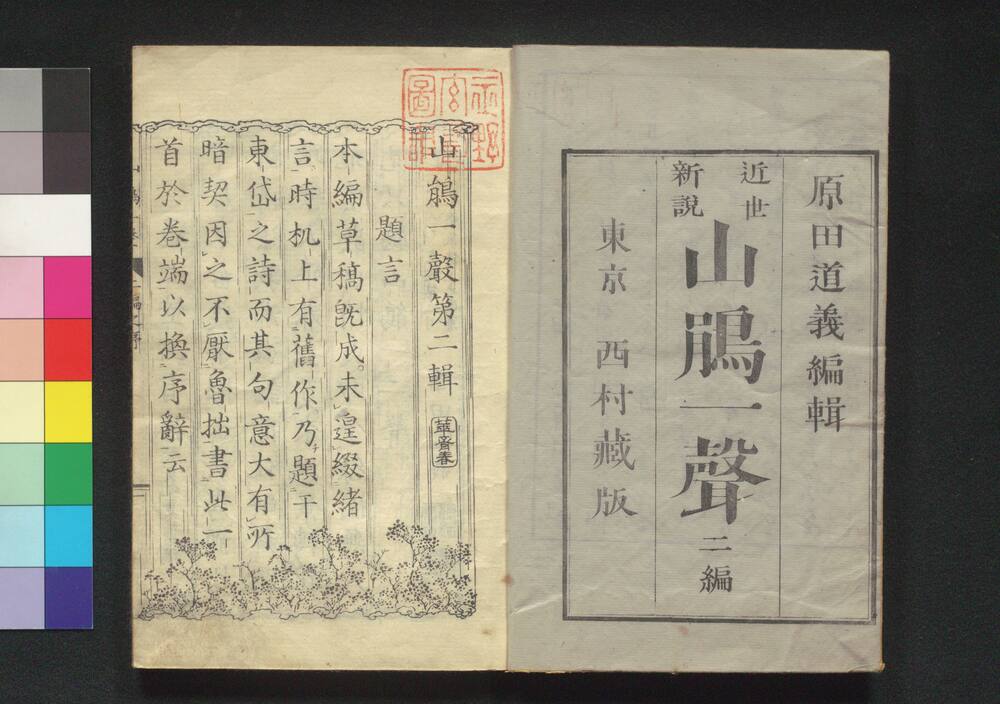 原田道義編輯
近世
新説
山鵑一聲
二編
東京 西村藏版
山鵑一聲第二輯
題言
本編草稿既成。未遑綴緒
言時机上有舊作乃題干
東岱之詩而其句意大有所
暗契因之不厭魯拙書此一
首於卷端以換序辭云